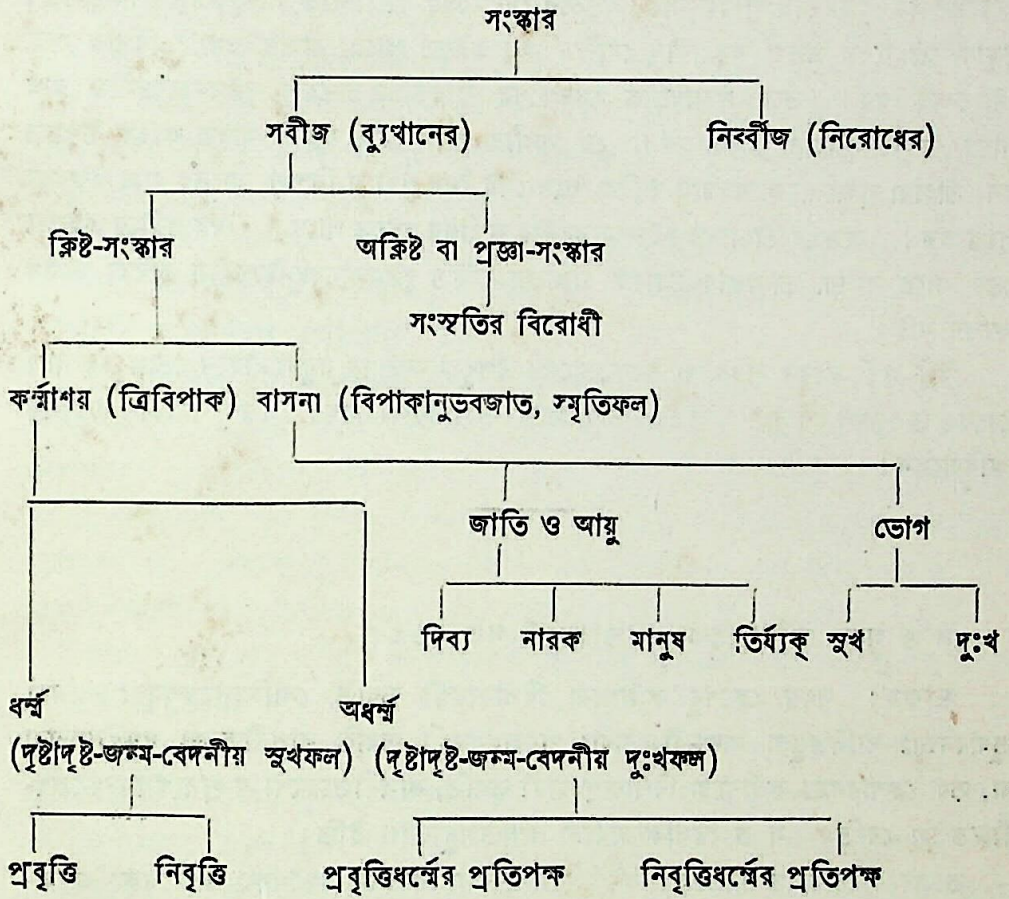 সংস্কার
সবীজ (ব্যুত্থানের) নির্ব্বীজ (নিরোধের)
ক্লিষ্ট-সংস্কার অক্লিষ্ট বা প্রজ্ঞা-সংস্কার
সংসৃতির বিরোধী
কর্ম্মাশয় (ত্রিবিপাক) বাসনা (বিপাকানুভবজাত, স্মৃতিফল)
জাতি ও আয়ু ভোগ
দিব্য নারক মানুষ তির্য্যক্ সুখ দুঃখ
ধর্ম্ম অধর্ম্ম
(দৃষ্টাদৃষ্ট-জন্ম-বেদনীয় সুখফল) (দৃষ্টাদৃষ্ট-জন্ম-বেদনীয় দুঃখফল)
প্রবৃত্তি নিবৃত্তি প্রবৃত্তিধর্ম্মের প্রতিপক্ষ নিবৃত্তিধর্ম্মের প্রতিপক্ষ